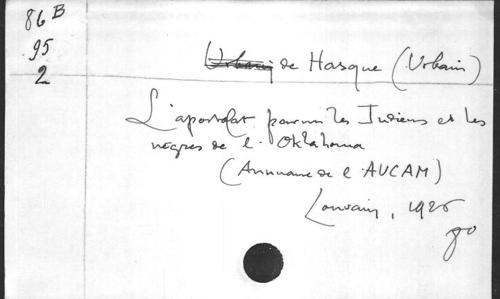 86 B
95
2
Urbain de Hasque (Urbain)
L'apostolat parmi les Indiens et les
nègres de l'Oklahoma
(Annuaire de l'AUCAM)
Louvain, 1926
8°